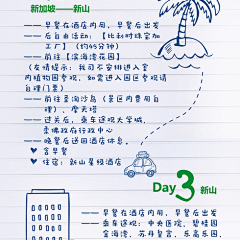 新加坡——新山
——早餐在酒店内用，早餐后出发
——后自由活动：【比利时珠宝加
工厂】（约45分钟）
——前往【滨海湾花园】
（友情提示：我司不安排进入室
内植物园参观，如需进入园区参观请
自理门票）
——前往圣淘沙岛（景区内费用自
理）、摩天塔
——过关后，乘车巡视大学城，
柔佛政府行政中心
——晚餐后送回酒店休息。
含早餐
住宿：新山星级酒店
Day 3 新山
——早餐在酒店内用，早餐后出发
——乘车巡视：中央医院、碧桂园
金海湾、苏丹皇宫、乐高乐园、